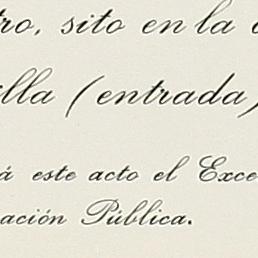 tro, sito en la
illa (entrada)
á este acto el Exce
ación Pública.